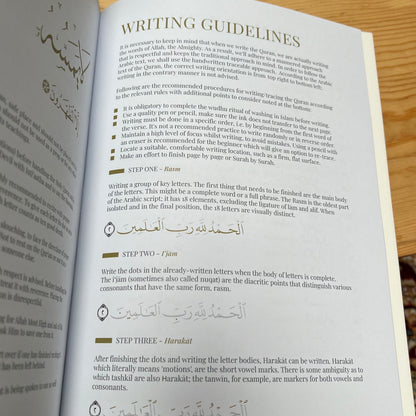 WRITING GUIDELINES
It is necessary to keep in mind that when we write the Quran, we are actually writing
the words of Allah, the Almighty. As a result, we'll adhere to a mannered approach
that is respectful and keeps the traditional approach in mind. In order to follow the
Arabic text, we shall use the handwritten traceable approach. According to the Arabic
text of the Quran, the correct writing orientation is from top right to bottom left;
writing in the contrary manner is not advised.
Following are the recommended procedures for writing/tracing the Quran according
to the relevant rules with additional points to consider noted at the bottom:
It is obligatory to complete the wudhu ritual of washing in Islam before writing.
Use a quality pen or pencil, make sure the ink does not transfer to the next page.
Writing must be done in a specific order, i.e. by beginning from the first word of
the verse. It's not a recommended practice to write randomly or in reverse order.
Maintain a high level of focus whilst writing, to avoid mistakes. Using a pencil with
an eraser is recommended for the beginner which will give an option to re-trace.
Locate a suitable, comfortable writing location, such as a firm, flat surface.
Make an effort to finish page by page or Surah by Surah.
STEP ONE - Rasm
Writing a group of key letters. The first thing that needs to be finished are the main body
of the letters. This might be a complete word or a full phrase. The Rasm is the oldest part
of the Arabic script; it has 18 elements, excluding the ligature of lam and alif. When
isolated and in the final position, the 18 letters are visually distinct.
ٱلْحَمْدُ لِلَّهِ رَبِّ ٱلْعَٰلَمِينَ ٢
STEP TWO - I'jām
Write the dots in the already-written letters when the body of letters is complete.
The i'jām (sometimes also called nuqat) are the diacritic points that distinguish various
consonants that have the same form, rasm.
ٱلْحَمْدُ لِلَّهِ رَبِّ ٱلْعَٰلَمِينَ ٢
STEP THREE - Harakāt
After finishing the dots and writing the letter bodies, Harakāt can be written. Harakāt
which literally means 'motions', are the short vowel marks. There is some ambiguity as to
which tashkīl are also Harakāt; the tanwin, for example, are markers for both vowels and
consonants.